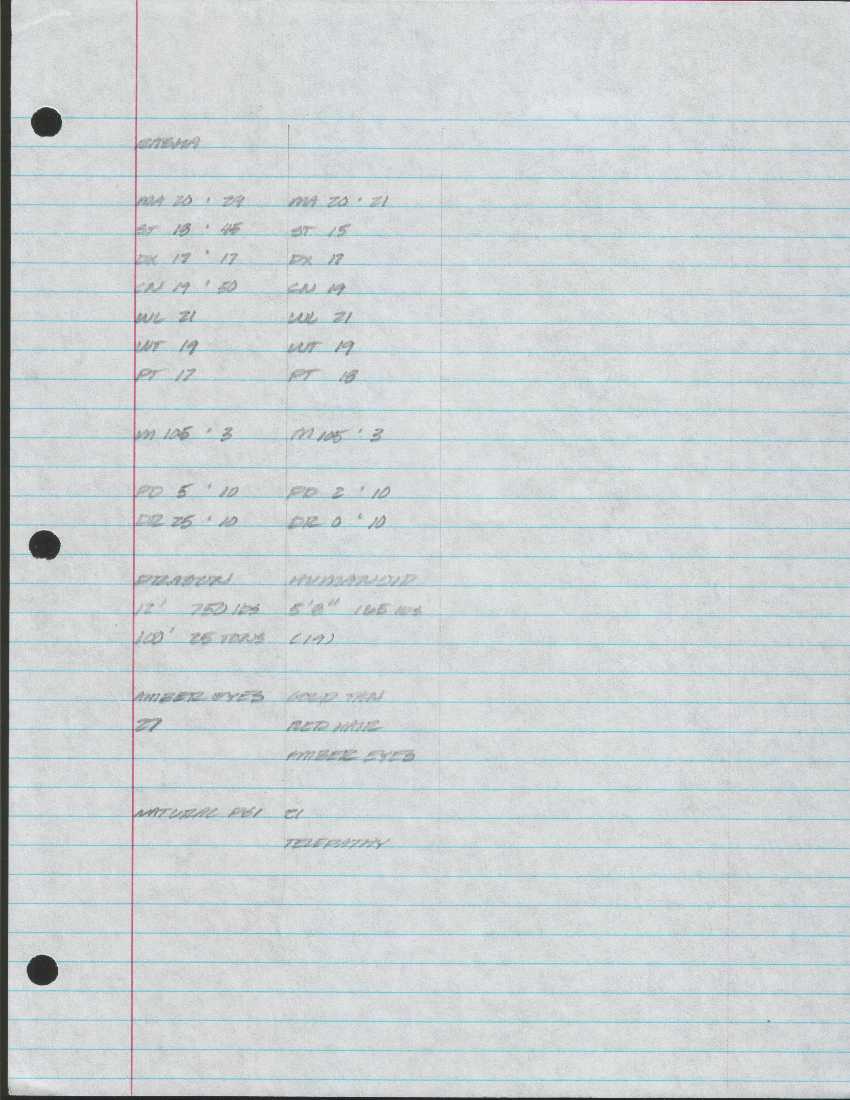 MA 20 · 29 MA 20 · 21
ST 18 · 45 ST 15
DX 17 · 17 DX 17
CN 19 · 50 CN 19
WL 21 WL 21
WT 19 WT 19
PT 17 PT 18
M 105 · 3 M 105 · 3
PD 5 · 10 PD 2 · 10
DR 25 · 10 DR 0 · 10
DRAGON HUMANOID
12' 750 lbs 5'8" 165 lbs
100' 25 TONS (19)
AMBER EYES GOLD TAN
27 RED HAIR
AMBER EYES
NATURAL PSI 21
TELEPATHY